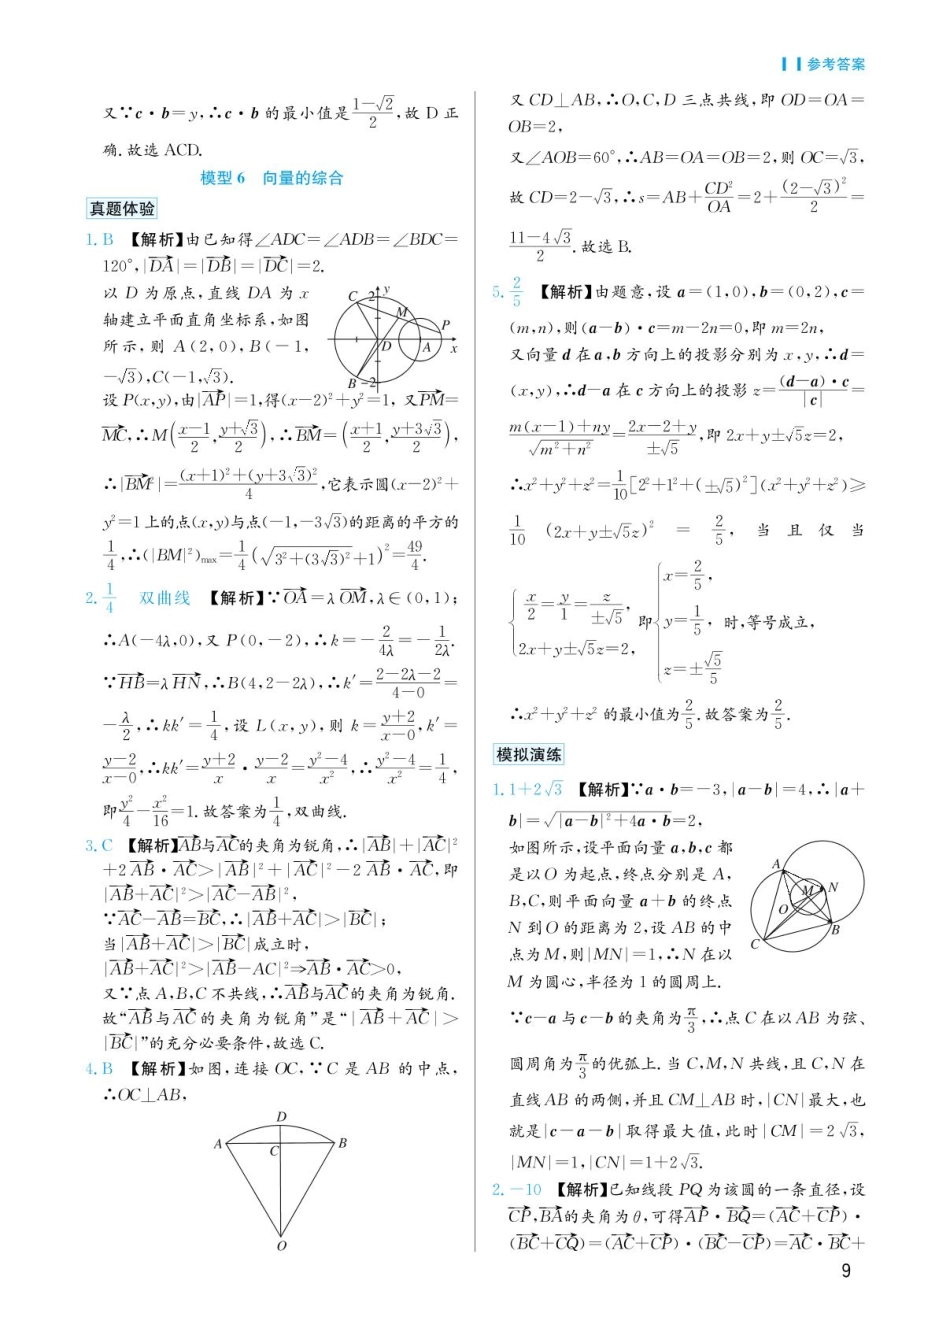 参考答案
又∵c·b=y,∴c·b 的最小值是(1-√2)/2,故 D 正
确.故选 ACD.
模型 6 向量的综合
真题体验
1. B 【解析】由已知得∠ADC=∠ADB=∠BDC=
120°,|DA|=|DB|=|DC|=2.
以 D 为原点,直线 DA 为 x
轴建立平面直角坐标系,如图
所示,则 A(2,0),B(-1,
-√3),C(-1,√3).
C 2 y M P D A x B -2
设 P(x,y),由|AP|=1,得(x-2)²+y²=1,又PM=
MC,∴M((x-1)/2,(y+√3)/2),∴BM=((x+1)/2,(y+3√3)/2),
∴|BM²|=((x+1)²+(y+3√3)²)/4,它表示圆(x-2)²+
y²=1上的点(x,y)与点(-1,-3√3)的距离的平方的
1/4,∴(|BM|²)max=1/4(√(3²+(3√3)²)+1)²=49/4.
2. 1/4 双曲线 【解析】∵OA=λOM,λ∈(0,1);
∴A(-4λ,0),又 P(0,-2),∴k=-2/4λ=-1/2λ.
∵HB=λHN,∴B(4,2-2λ),∴k′=(2-2λ-2)/(4-0)=
-λ/2,∴kk′=1/4,设 L(x,y),则 k=(y+2)/(x-0),k′=
(y-2)/(x-0),∴kk′=(y+2)/x·(y-2)/x=(y²-4)/x²,∴(y²-4)/x²=1/4,
即y²/4-x²/16=1.故答案为1/4,双曲线.
3. C 【解析】AB与AC的夹角为锐角,∴|AB|+|AC|²
+2AB·AC>|AB|²+|AC|²-2AB·AC,即
|AB+AC|²>|AC-AB|²,
∵AC-AB=BC,∴|AB+AC|>|BC|;
当|AB+AC|>|BC|成立时,
|AB+AC|²>|AB-AC|²⇒AB·AC>0,
又∵点 A,B,C 不共线,∴AB与AC的夹角为锐角.
故“AB与AC的夹角为锐角”是“|AB+AC|>
|BC|”的充分必要条件,故选 C.
4. B 【解析】如图,连接 OC,∵C 是 AB 的中点,
∴OC⊥AB,
D
A C B
O
又 CD⊥AB,∴O,C,D 三点共线,即 OD=OA=
OB=2,
又∠AOB=60°,∴AB=OA=OB=2,则 OC=√3,
故 CD=2-√3,∴s=AB+CD²/OA=2+(2-√3)²/2=
(11-4√3)/2.故选 B.
5. 2/5 【解析】由题意,设 a=(1,0),b=(0,2),c=
(m,n),则(a-b)·c=m-2n=0,即 m=2n,
又向量 d 在 a,b 方向上的投影分别为 x,y,∴d=
(x,y),∴d-a 在 c 方向上的投影 z=((d-a)·c)/|c|=
(m(x-1)+ny)/√(m²+n²)=(2x-2+y)/±√5,即 2x+y±√5z=2,
∴x²+y²+z²=1/10[2²+1²+(±√5)²](x²+y²+z²)≥
1/10(2x+y±√5z)²=2/5,当且仅当
{x/2=y/1=z/±√5, 2x+y±√5z=2, 即{x=2/5, y=1/5, z=±√5/5 时,等号成立,
∴x²+y²+z² 的最小值为2/5.故答案为2/5.
模拟演练
1. 1+2√3 【解析】∵a·b=-3,|a-b|=4,∴|a+
b|=√(|a-b|²+4a·b)=2,
如图所示,设平面向量 a,b,c 都
是以 O 为起点,终点分别是 A,
B,C,则平面向量 a+b 的终点
N 到 O 的距离为 2,设 AB 的中
点为 M,则|MN|=1,∴N 在以
M 为圆心,半径为 1 的圆周上.
A M N O B C
∵c-a 与 c-b 的夹角为π/3,∴点 C 在以 AB 为弦、
圆周角为π/3的优弧上.当 C,M,N 共线,且 C,N 在
直线 AB 的两侧,并且 CM⊥AB 时,|CN|最大,也
就是|c-a-b|取得最大值,此时|CM|=2√3,
|MN|=1,|CN|=1+2√3.
2. -10 【解析】已知线段 PQ 为该圆的一条直径,设
CP,BA的夹角为θ,可得AP·BQ=(AC+CP)·
(BC+CQ)=(AC+CP)·(BC-CP)=AC·BC+
9